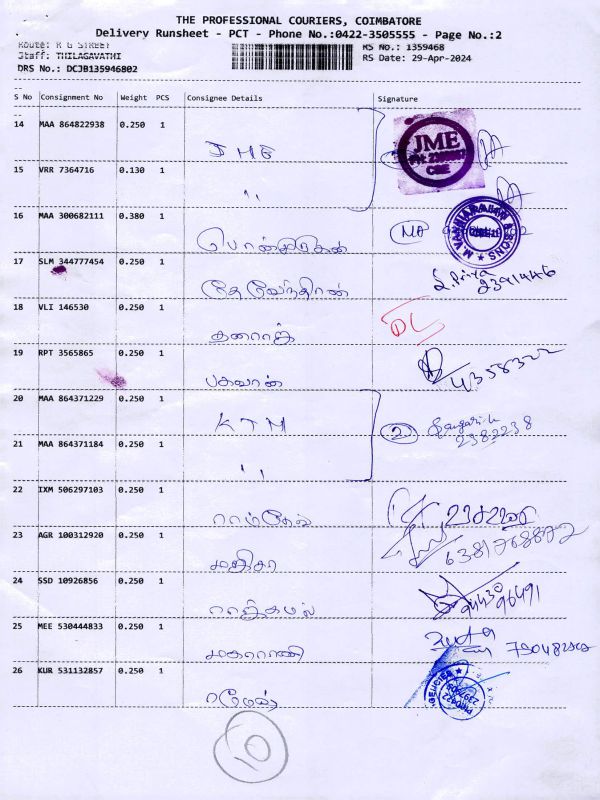 THE PROFESSIONAL COURIERS, COIMBATORE
Delivery Runsheet - PCT - Phone No.:0422-3505555 - Page No.:2
Route: R G STREET
Staff: THILAGAVATHI
DRS No.: DCJB135946802
RS No.: 1359468
RS Date: 29-Apr-2024
S No Consignment No Weight PCS Consignee Details Signature
14 MAA 864822938 0.250 1 JME JME
15 VRR 7364716 0.130 1 ,,
16 MAA 300682111 0.380 1 பொன்முருகன்
17 SLM 344777454 0.250 1 தேவேந்திரன் S. Priya 2391446
18 VLI 146530 0.250 1 தனராஜ் DL
19 RPT 3565865 0.250 1 பகவான் 4358322
20 MAA 864371229 0.250 1 KTM 2 2382238
21 MAA 864371184 0.250 1 ,,
22 IXM 506297103 0.250 1 ராம்தேவ்
23 AGR 100312920 0.250 1 மனிசா 6381768872
24 SSD 10926856 0.250 1 ராஜ்கமல்
25 MEE 530444833 0.250 1 மகாராணி
26 KUR 531132857 0.250 1 ரமேஷ்
10